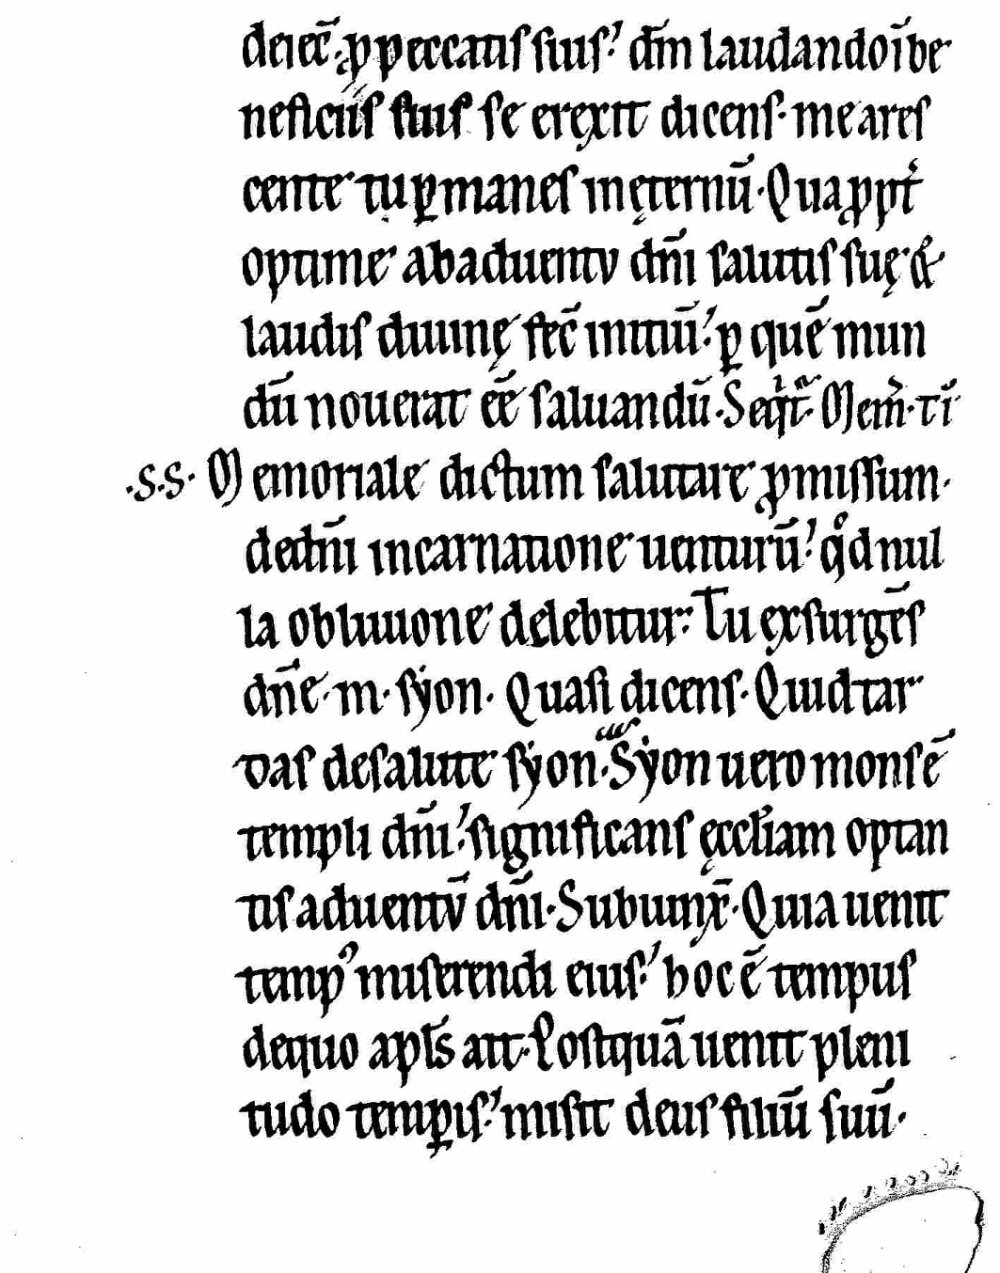 deiec̄. ꝓ peccatis suis.' dm̄ laudando ī be
neficiis suis se erexit dicens. me ares
cente tu ꝑmanes in ęternū. Quaꝓpt̓
optime ab aduentu dn̄i salutis suę &
laudis diuinę fec̄ initiū.' ꝑ quē mun
dū nouerat eē saluandū. Seqt̓. Mem̓. tī
.S.S. Memoriale dictum salutare ꝓmissum
de dn̄i incarnatione uenturū.' qd̊ nul
la obliuione delebitur. Tu exsurgēs
dn̄e. m. syon. Quasi dicens. Quid tar
das de salute syon. Syon uero mons ē
templi dn̄i.' significans ęccl̄iam optan
tis aduentū dn̄i. Subiunx̄. Quia uenit
temp᾽ miserendi eius.' hoc ē tempus
de quo apl̄s ait. Postquā uenit pleni
tudo temꝑis.' misit deus filiū suū.